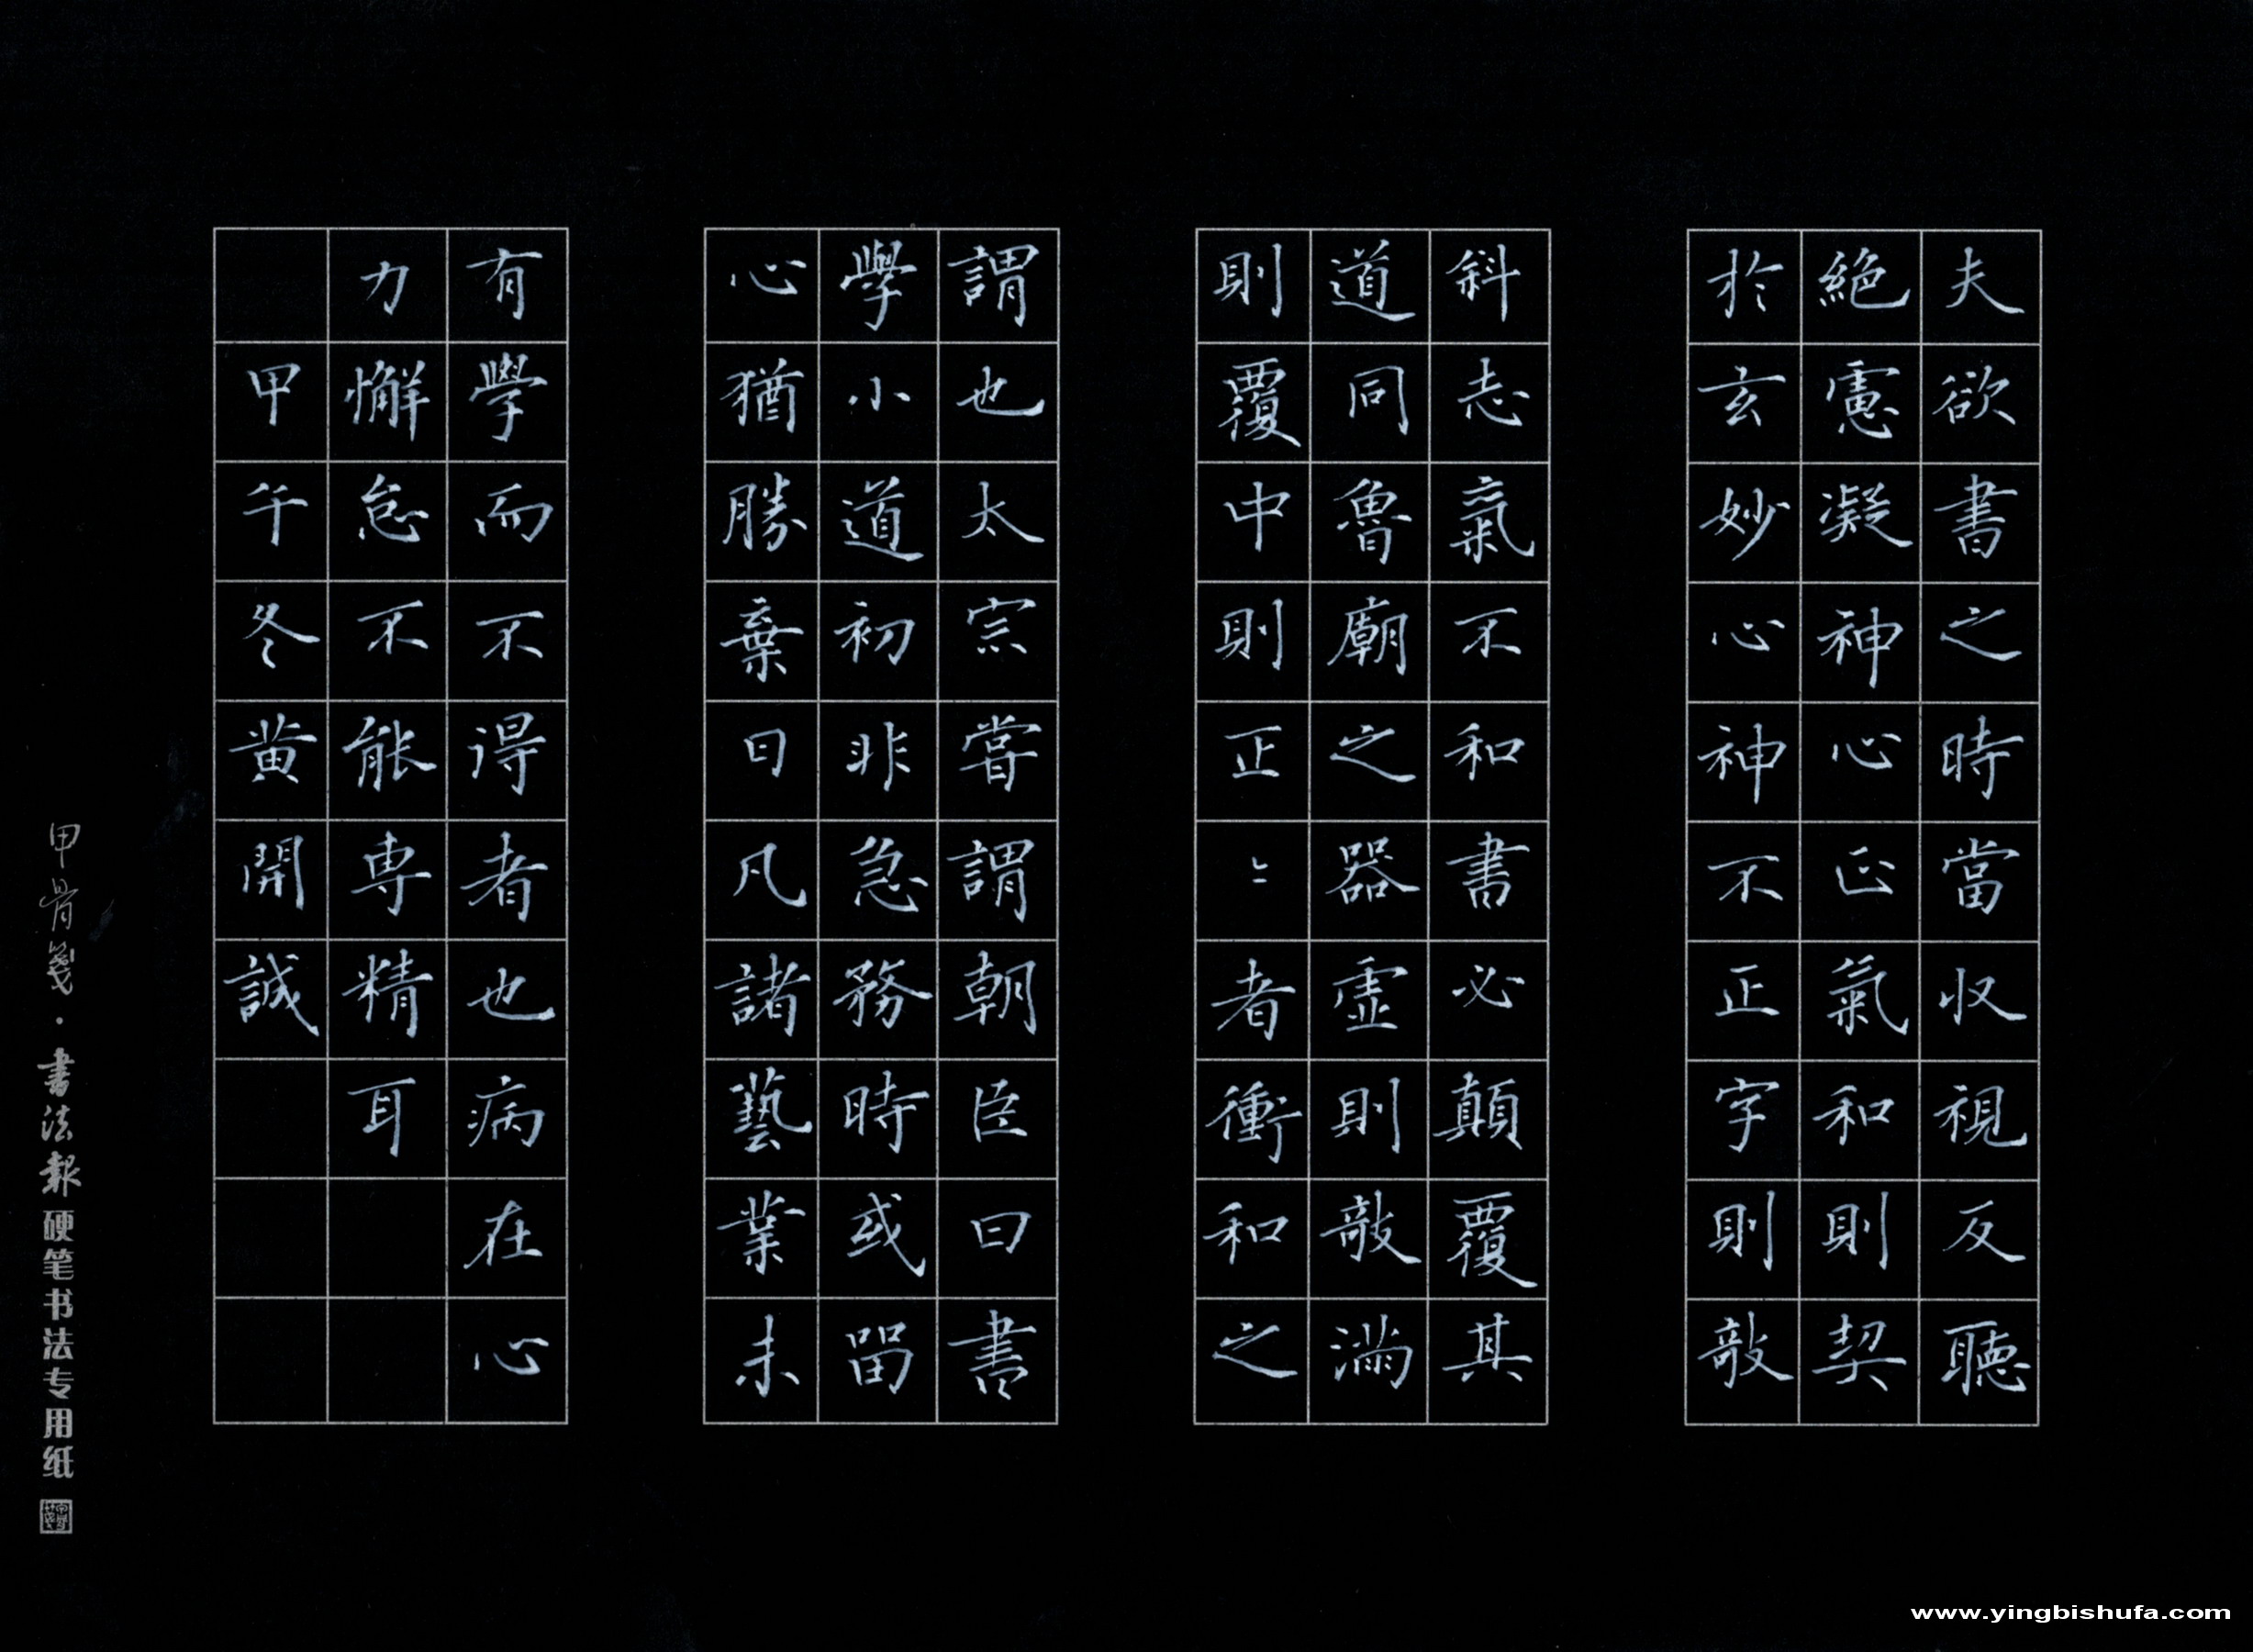 夫欲書之時當收視反聽
絕慮凝神心正氣和則契
於玄妙心神不正字則敧
斜志氣不和書必顛覆其
道同魯廟之器虛則敧滿
則覆中則正〻者衝和之
謂也太宗嘗謂朝臣曰書
學小道初非急務時或留
心猶勝棄日凡諸藝業未
有學而不得者也病在心
力懈怠不能專精耳
甲午冬黃開誠
甲骨箋·書法報硬笔书法专用纸
www.yingbishufa.com